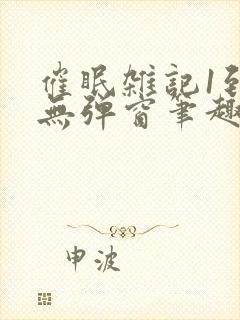 催眠雑記1到
無弹窗筆趣
申波